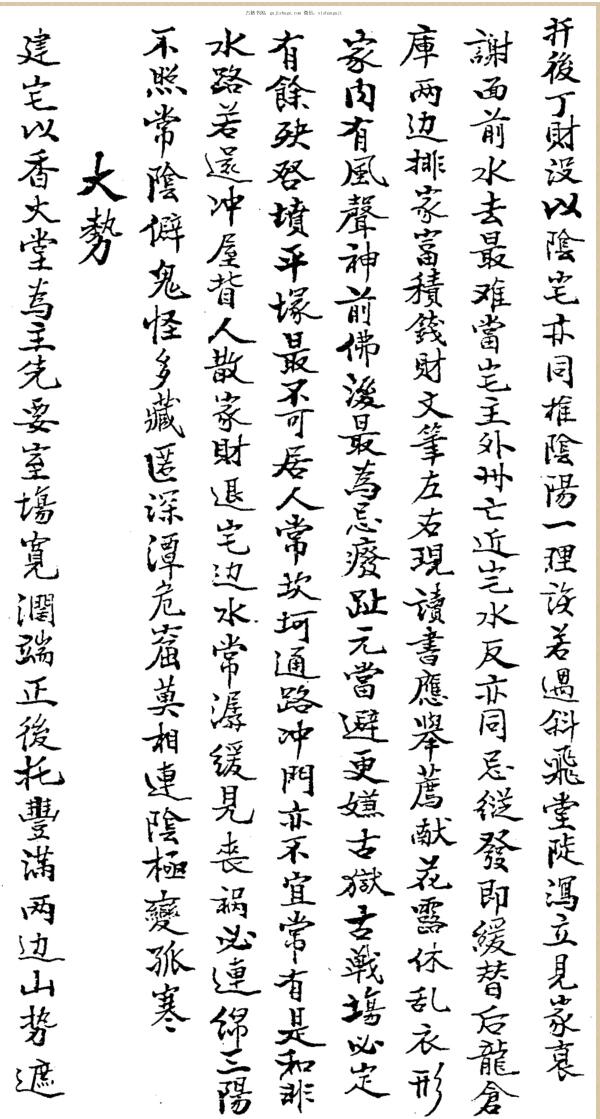 扦後丁財没以陰宅亦同推陰陽一理設若過斜飛堂陡瀉立見家衰
謝面前水去最难當宅主外州亡近宅水反亦同忌縱發即緩替后龍倉
庫两边排家富積錢財文筆左右現讀書應舉薦献花露体乱衣形
家内有風聲神前佛後最為忌癈趾元當避更嫌古獄古戰塲必定
有餘殃啓墳平塚最不可居人常坎坷通路冲門亦不宜常有是和非
水路若還冲屋背人散家財退宅边水常潺緩見喪祸必連綿三陽
不照常陰僻鬼怪多藏匿深潭危窟莫相連陰極變孤寒
大勢
建宅以香火堂為主先要室塲寬濶端正後托豐滿两边山势遮